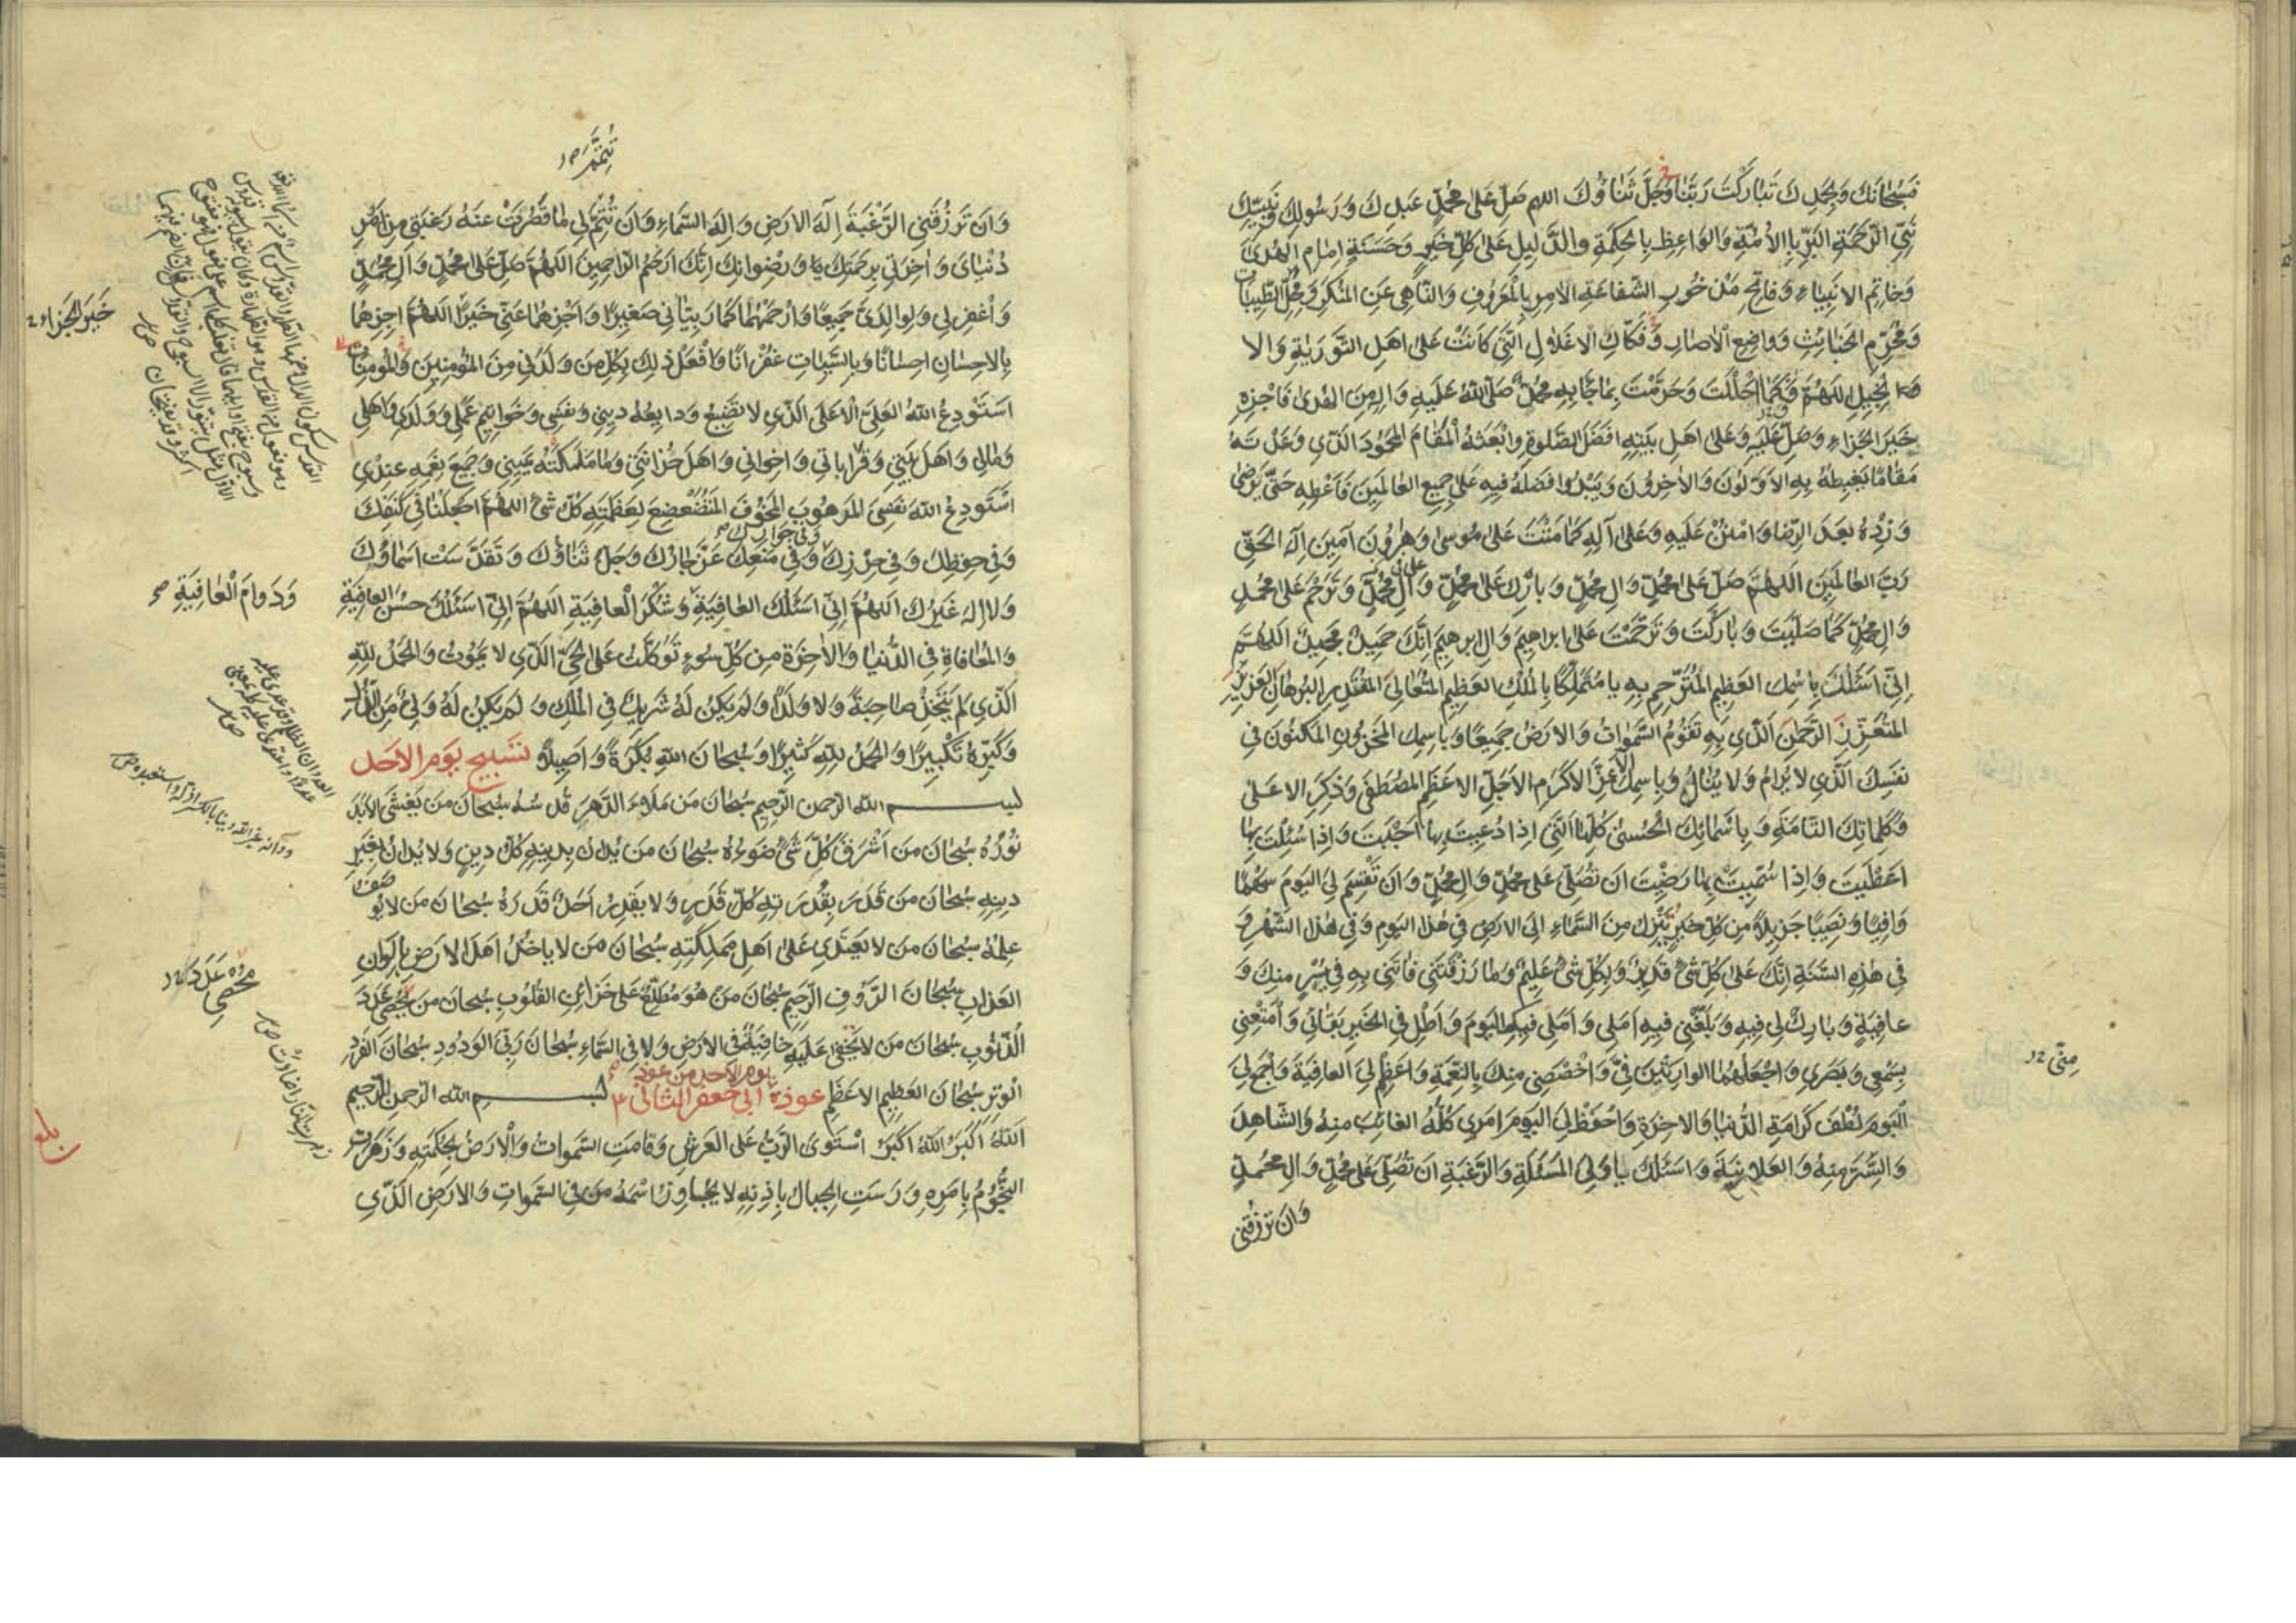 فَسُبْحَانَكَ وَبِحَمْدِكَ تَبَارَكْتَ رَبَّنَا وَجَلَّ ثَنَاؤُكَ اللهم صَلِّ عَلَى مُحَمَّدٍ عَبْدِكَ وَرَسُولِكَ وَنَبِيِّكَ
نَبِيِّ الرَّحْمَةِ البَرِّ بِالأُمَّةِ وَالوَاعِظِ بِالحِكْمَةِ والدَّلِيلِ عَلَى كُلِّ خَيْرٍ وَحَسَنَةٍ اِمَامِ الهُدَى
وَخَاتِمِ الانبِيَاءِ وَفَاتِحِ مَذْخُورِ الشَّفَاعَةِ الآمِرِ بِالْمَعْرُوفِ وَالنَّاهِي عَنِ المُنْكَرِ وَمُحِلِّ الطَّيِّبَاتِ
وَمُحَرِّمِ الخَبَائِثِ وَوَاضِعِ الآصَارِ وَفَكَّاكِ الاَغْلَالِ الَّتِي كَانَتْ عَلَى اَهْلِ التَّوْرَيةِ وَالا
نجِيلِ اللهُمَّ فَكَمَا اَحْلَلْتَ وَحَرَّمْتَ بِمَا جَاءَ بِهِ مُحَمَّدٌ صَلَّى اللهُ عَلَيهِ وَالِهِ مِنَ الهُدَى فَاجْزِهِ
خَيْرَ الجَزَاءِ وَصَلِّ عَلَيْهِ وَعَلَى اَهْلِ بَيْتِهِ اَفْضَلَ الصَّلَوةِ وَابْعَثْهُ الْمَقَامَ المَحْمُودَ الَّذِي وَعَدْتَهُ
مَقَامًا يَغْبِطُهُ بِهِ الاَوَّلُونَ وَالآخِرُونَ وَيَبْدُو فَضْلُهُ فِيهِ عَلَى جَمِيعِ العَالَمِينَ فَاَعْطِهِ حَتَّى يَرْضَى
وَزِدْهُ بَعْدَ الرِّضَا وَامْنُنْ عَلَيْهِ وَعَلَى آلِهِ كَمَا مَنَنْتَ عَلَى مُوسَى وَهَارُونَ آمِينَ اِلَهَ الحَقِّ
رَبَّ العَالَمِينَ اللهُمَّ صَلِّ عَلَى مُحَمَّدٍ وَالِ مُحَمَّدٍ وَبَارِكْ عَلَى مُحَمَّدٍ وَآلِ مُحَمَّدٍ وَتَرَحَّمْ عَلَى مُحَمَّدٍ
وَالِ مُحَمَّدٍ كَمَا صَلَّيْتَ وَبَارَكْتَ وَتَرَحَّمْتَ عَلَى ابراهِيمَ وَالِ ابرهِيمَ اِنَّكَ حَمِيدٌ مَجِيدٌ اللهُمَّ
اِنِّي اَسْئَلُكَ بِاسْمِكَ العَظِيمِ المُتَرَحَّمِ بِهِ يا مُتَمَلِّكًا بِالمُلْكِ العَظِيمِ المُتَعَالِي المُقْتَدِرِ البُرهَانِ العَزِيزِ
المُتَعَزِّزِ الرَّحْمنِ الَّذِي بِهِ تَقُومُ السَّمَواتُ وَالارْضُ جَمِيعًا وَبِاسْمِكَ المَخْزُونِ المَكْنُونِ فِي
نَفْسِكَ الَّذِي لا يُرَامُ وَلا يُنَالُ وَبِاسْمِكَ الاَعَزِّ الاَكْرَمِ الاَجَلِّ الاَعْظَمِ المُصْطَفَى وَذِكْرِكَ الاعلَى
وَكَلِمَاتِكَ التَّامَّةِ وَبِاَسْمَائِكَ الْحُسْنَى كُلِّهَا الَّتِي اِذَا دُعِيتَ بِهَا اَجَبْتَ وَاِذَا سُئِلْتَ بِهَا
اَعْطَيتَ وَاِذَا سُمِّيتَ بِهَا رَضِيْتَ اَنْ تُصَلِّيَ عَلَى مُحَمَّدٍ وَالِ مُحَمَّدٍ وَاَنْ تَقْسِمَ لِيَ اليَوْمَ سَهْمًا
وَافِيًا وَنَصِيبًا جَزِيلًا مِنْ كُلِّ خَيْرٍ يَنْزِلُ مِنَ السَّمَاءِ اِلَى الارْضِ فِي هَذَا اليَومِ وَفِي هَذَا الشَّهْرِ وَ
فِي هَذِهِ السَّنَةِ اِنَّكَ عَلَى كُلِّ شَيْءٍ قَدِيرٌ وَبِكُلِّ شَيْءٍ عَلِيمٌ وَمَا رَزَقْتَنِي فَاْتِنِي بِهِ فِي يُسْرٍ مِنْكَ وَ
عَافِيَةٍ وَبَارِكْ لِي فِيهِ وَبَلِّغْنِي فِيهِ اَمَلِي وَاَمَلِي فِيهِ اليَوْمَ وَاَطِلْ فِي الخَيرِ بَقَائِي وَاَمْتِعْنِي
بِسَمْعِي وَبَصَرِي وَاجْعَلْهُمَا الوَارِثَيْنِ مِنِّي وَاخْصُصْنِي مِنْكَ بِالنِّعْمَةِ وَاَعْظِمْ لِيَ العَافِيَةَ وَاجْمَعْ لِيَ
الْيَومَ لُطْفَ كَرَامَةِ الدُّنْيَا وَالآخِرَةِ وَاحْفَظْ لِيَ اليَومَ اَمْرِي كُلَّهُ الغَائِبَ مِنْهُ وَالشَّاهِدَ
وَالسِّرَّ مِنْهُ وَالعَلَانِيَةَ وَاَسْئَلُكَ يَا وَلِيَّ المَسْئَلَةِ وَالرَّغْبَةِ اَنْ تُصَلِّيَ عَلَى مُحَمَّدٍ وَالِ مُحَمَّدٍ
وَاَنْ تَرْزُقَنِي
وَاَنْ تَرْزُقَنِي الرَّغْبَةَ اِلَهَ الارْضِ وَاِلَهَ السَّمَاءِ وَاَنْ تُتِمَّ لِي مَا قَصُرَتْ عَنْهُ رَغْبَتِي مِنْ اَمْرِ
دُنْيَايَ وَاخِرَتِي بِرَحْمَتِكَ وَرِضْوَانِكَ اِنَّكَ اَرْحَمُ الرَّاحِمِينَ اللهُمَّ صَلِّ عَلَى مُحَمَّدٍ وَالِ مُحَمَّدٍ
وَاغْفِرْ لِي وَلِوَالِدَيَّ جَمِيعًا وَارْحَمْهُمَا كَمَا رَبَّيَانِي صَغِيرًا وَاجْزِهِمَا عَنِّي خَيْرًا اللهُمَّ اجزِهِمَا
خَيْرَ الْجَزَاءِ
بِالاِحسَانِ اِحسَانًا وَبِالسَّيِّئَاتِ غُفْرَانًا وَافْعَلْ ذلِكَ بِكُلِّ مَنْ وَلَدَنِي مِنَ المُؤمِنِينَ وَالمُؤمِنَاتِ
اَسْتَوْدِعُ اللهَ العَلِيَّ الاَعْلَى الَّذِي لا تَضِيعُ وَدَايِعُهُ دِينِي وَنَفْسِي وَخَوَاتِيمَ عَمَلِي وَوَلَدِي وَاَهْلِي
وَمَالِي وَاَهْلَ بَيْتِي وَقَرَابَاتِي وَاِخْوَانِي وَاَهْلَ حُزَانَتِي وَمَا مَلَكَتْهُ يَمِينِي وَجَمِيعَ نِعَمِهِ عِنْدِي
اَسْتَودِعُ اللهَ نَفْسِيَ المَرهُوبَ المَخُوفَ المُتَضَعْضِعَ لِعَظَمَتِهِ كُلُّ شَيْءٍ اللهُمَّ اجْعَلْنَا فِي كَنَفِكَ
وَفِي جِوَارِكَ
وَفِي حِفْظِكَ وَفِي حِرْزِكَ وَفِي مَنْعِكَ عَزَّ جَارُكَ وَجَلَّ ثَنَاؤُكَ وَتَقَدَّسَتْ اَسْمَاؤُكَ
وَلَا اِلهَ غَيْرُكَ اللهُمَّ اِنِّي اَسْئَلُكَ العَافِيَةَ وَشُكْرَ الْعَافِيَةِ اللهُمَّ اِنِّي اَسْئَلُكَ حُسْنَ العَافِيَةِ
وَدَوَامَ الْعَافِيَةِ
وَالمُعَافَاةِ فِي الدُّنْيَا وَالآخِرَةِ مِنْ كُلِّ سُوءٍ تَوَكَّلْتُ عَلَى الحَيِّ الَّذِي لا يَمُوتُ وَالحَمْدُ لِلّهِ
الَّذِي لَمْ يَتَّخِذْ صَاحِبَةً وَلا وَلَدًا وَلَمْ يَكُنْ لَهُ شَرِيكٌ فِي المُلْكِ وَلَمْ يَكُنْ لَهُ وَلِيٌّ مِنَ الذُّلِّ
وَكَبِّرْهُ تَكْبِيرًا وَالحَمْدُ لِلّهِ كَثِيرًا وَسُبْحَانَ اللهِ بُكْرَةً وَاَصِيلًا تسْبِيحُ يَوْمِ الاَحَدِ
بسم الله الرحمن الرَّحِيم سُبْحَانَ مَنْ مَلَاءَ الدَّهْرَ قُدْسُهُ سُبْحَانَ مَنْ يَغْشَى الاَبَدَ
نُورُهُ سُبْحَانَ مَنْ اَشْرَقَ كُلَّ شَيْءٍ ضَوْءُهُ سُبْحَانَ مَنْ يُدَانُ بِدِينِهِ كُلُّ دِينٍ وَلا يُدَانُ بِغَيْرِ
دِينِهِ سُبْحَانَ مَنْ قَدَّرَ بِقُدْرَتِهِ كُلَّ قَدَرٍ وَلا يَقْدِرُ اَحَدٌ قَدْرَهُ سُبْحَانَ مَنْ لا يُوصَفُ
عِلْمُهُ سُبْحَانَ مَنْ لا يَعْتَدِي عَلَى اَهْلِ مَمْلَكَتِهِ سُبْحَانَ مَنْ لا يَاخُذُ اَهْلَ الارْضِ بِاَلْوَانِ
العَذَابِ سُبْحَانَ الرَّؤُوفِ الرَّحِيمِ سُبْحَانَ مَنْ هُوَ مُطَّلِعٌ عَلَى خَزَائِنِ القُلُوبِ سُبْحَانَ مَنْ يُحْصِي عَدَدَ
الذُّنُوبِ سُبْحَانَ مَنْ لا يَخْفَى عَلَيْهِ خَافِيَةٌ فِي الارْضِ وَلا فِي السَّمَاءِ سُبْحَانَ رَبِّيَ الوَدُودِ سُبْحَانَ الفَرْدِ
الْوِتْرِ سُبْحَانَ العَظِيمِ الاَعْظَمِ عوذة ابي جعفر الثاني بسم الله الرَّحمن الرَّحِيم
اَللهُ اَكْبَرُ اللهُ اَكْبَرُ اسْتَوَى الرَّبُّ عَلَى العَرْشِ وَقَامَتِ السَّمَواتُ وَالْاَرْضُ بِحِكْمَتِهِ وَزَهَرَتِ
النُّجُومُ بِاَمْرِهِ وَرَسَتِ الجِبَالُ بِاِذْنِهِ لا يُجَاوِزُ اسْمَهُ مَنْ فِي السَّمَواتِ وَالارْضِ الَّذِي
بلغ